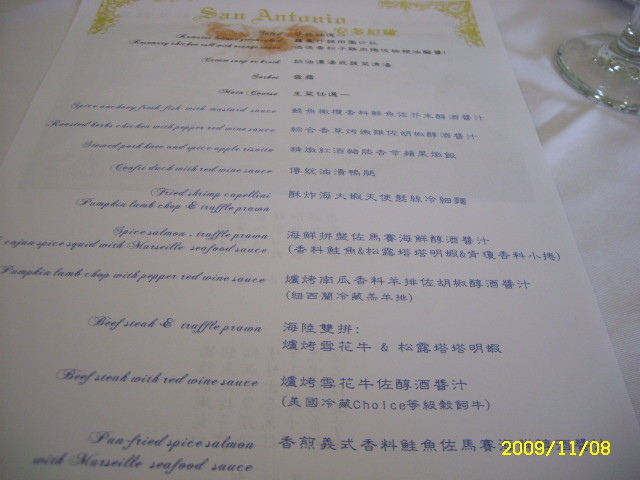 San Antonio
Cream soup or broth 奶油濃湯或蔬菜清湯
Sorbet 雪霜
Main Course 主菜任選一
Spice anchovy fresh fish with mustard sauce
Roasted herbs chicken with pepper red wine sauce 綜合香草烤嫩雞佐胡椒醇酒醬汁
Stewed pork bone and spice apple risotto
Confit duck with red wine sauce 傳統油漬鴨腿
Fried shrimp capellini 酥炸海大蝦天使髮絲冷麵
Pumpkin lamb chop & truffle prawn
Spice salmon , truffle prawn 海鮮拼盤佐馬賽海鮮醇酒醬汁
cajun spice squid with Marseille seafood sauce (香料鮭魚&松露塔塔明蝦&肯瓊香料小捲)
Pumpkin lamb chop with pepper red wine sauce 爐烤南瓜香料羊排佐胡椒醇酒醬汁
(紐西蘭冷藏羔羊排)
Beef steak & truffle prawn 海陸雙拼:
爐烤雪花牛 & 松露塔塔明蝦
Beef steak with red wine sauce 爐烤雪花牛佐醇酒醬汁
(美國冷藏Choice等級穀飼牛)
Pan-fried spice salmon 香煎義式香料鮭魚佐馬賽
with Marseille seafood sauce
2009/11/08